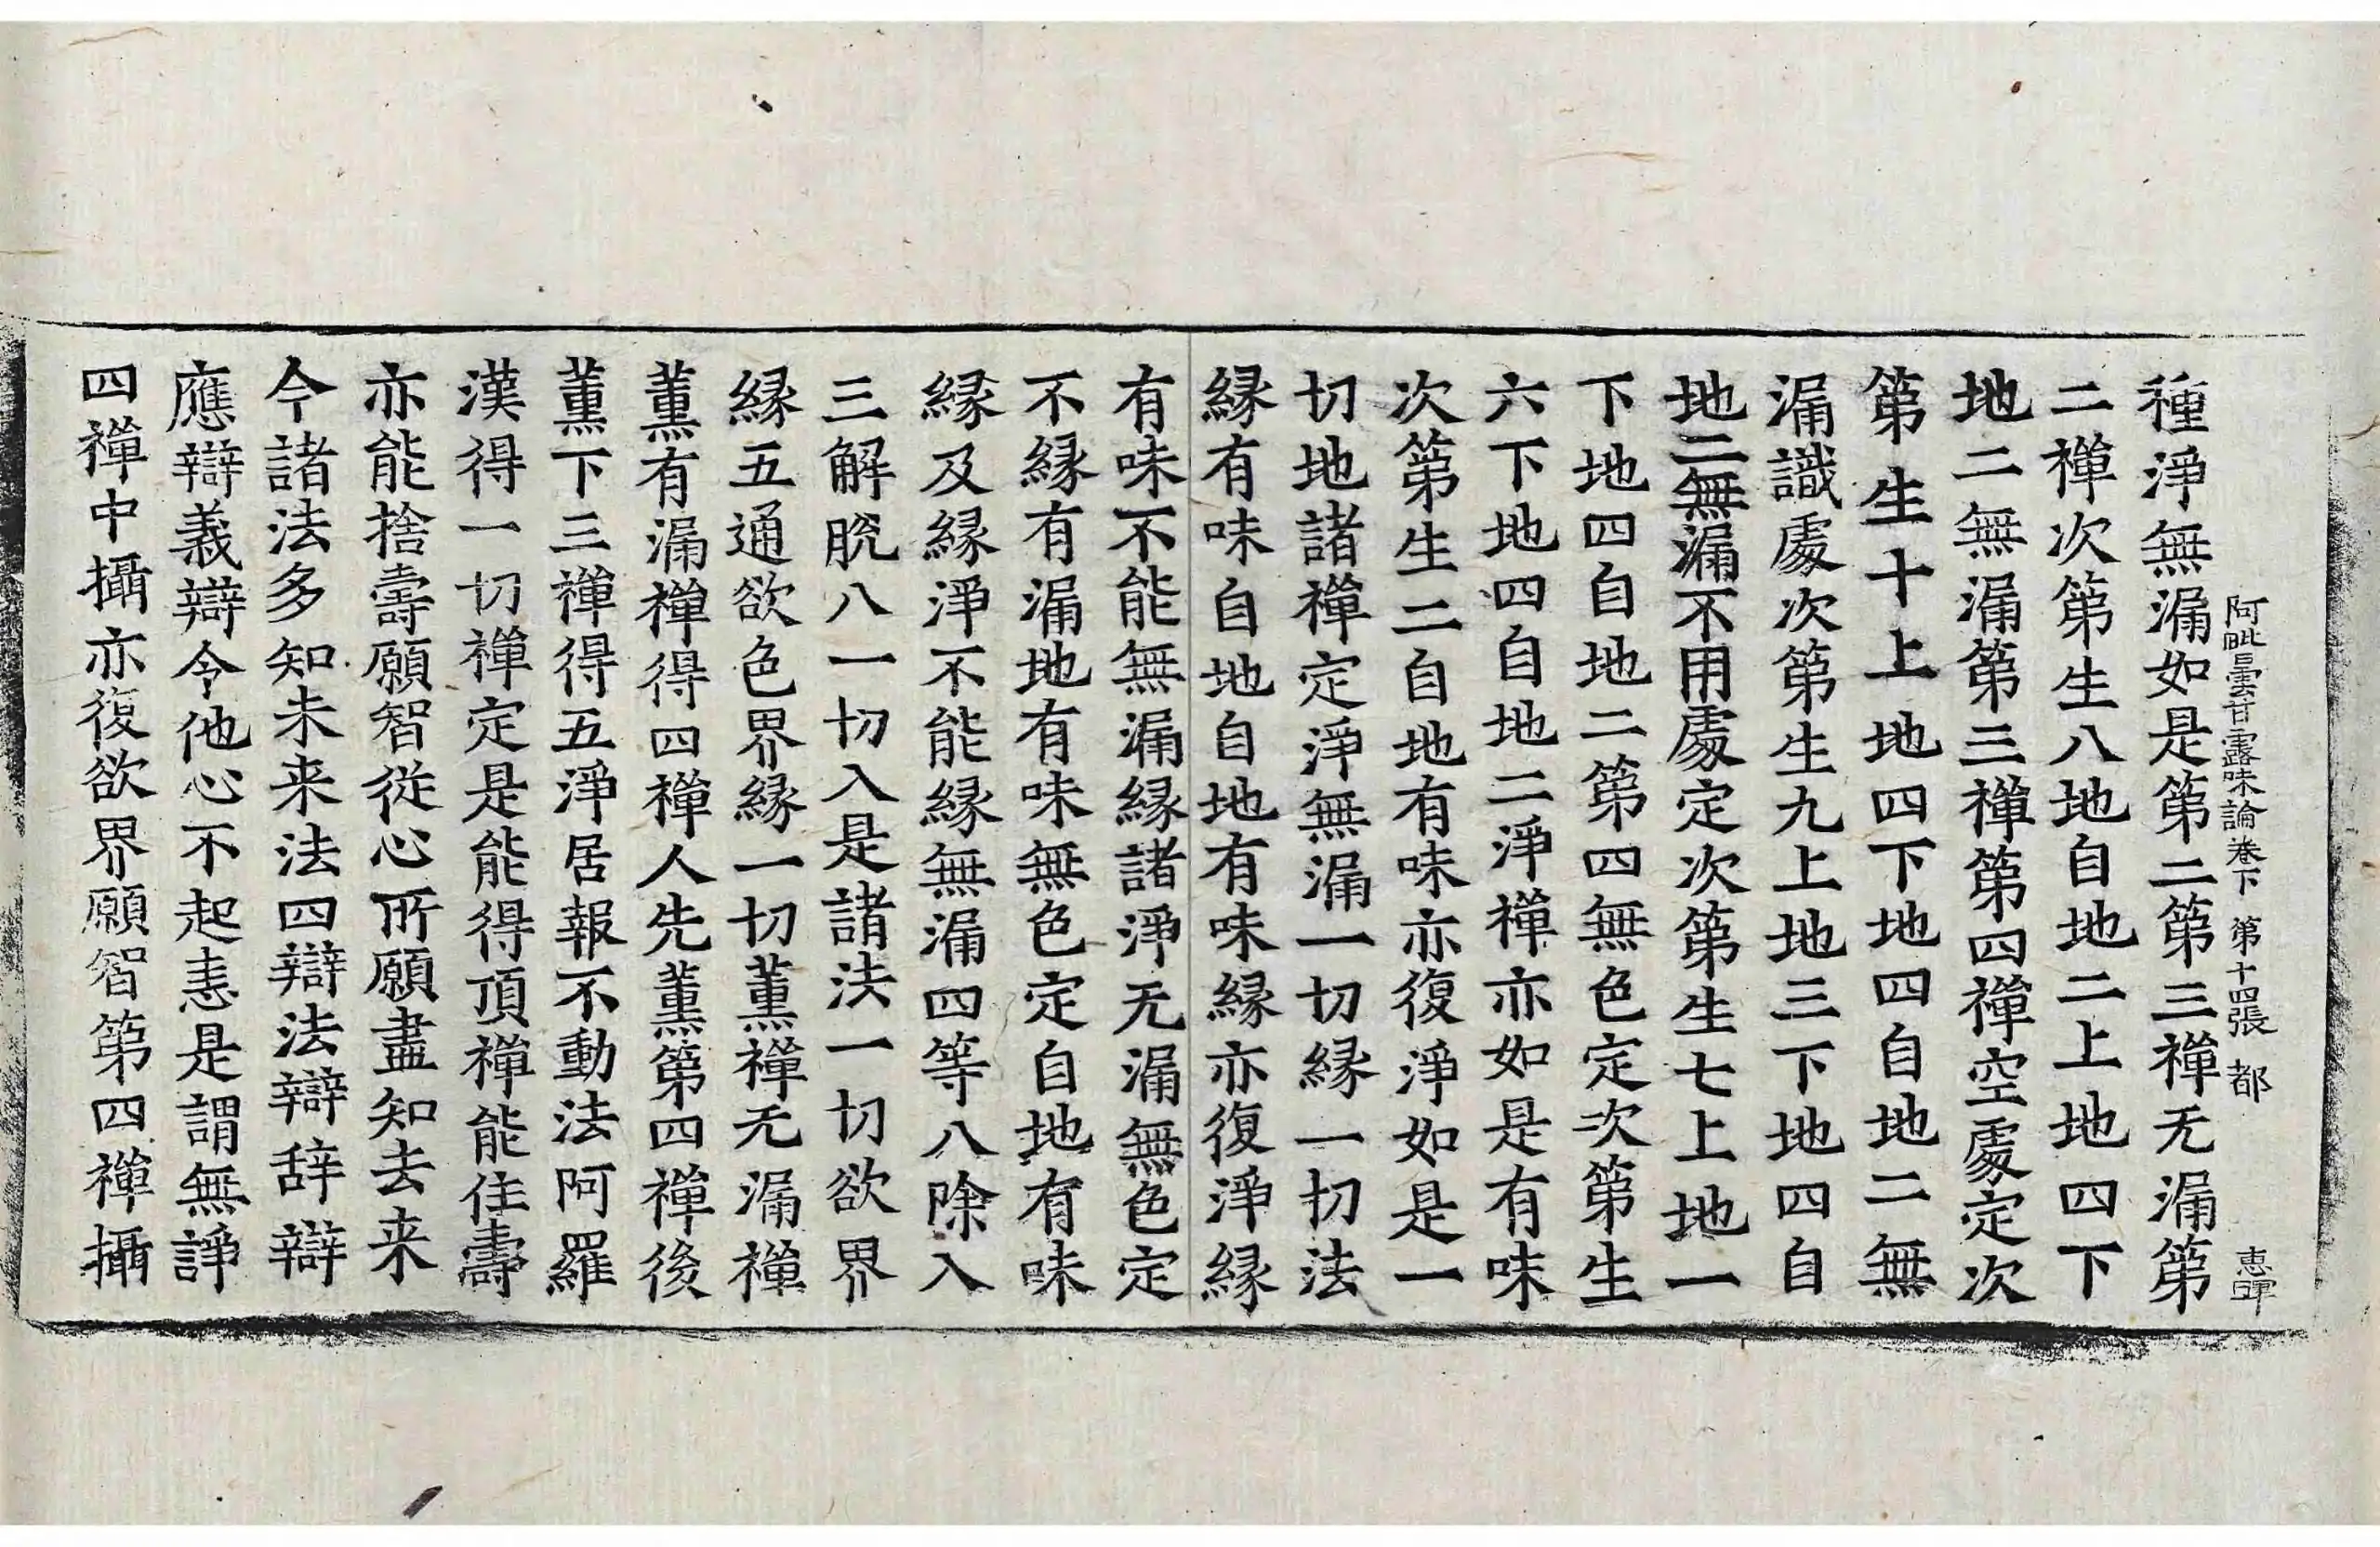 阿毗曇甘露味論卷下 第十四張 都 惠暉
種淨無漏如是第二第三禪无漏第
二禪次第生八地自地二上地四下
地二無漏第三禪第四禪空處定次
第生十上地四下地四自地二無
漏識處次第生九上地三下地四自
地二無漏不用處定次第生七上地一
下地四自地二第四無色定次第生
六下地四自地二淨禪亦如是有味
次第生二自地有味亦復淨如是一
切地諸禪定淨無漏一切縁一切法
縁有味自地自地有味縁亦復淨縁
有味不能無漏縁諸淨无漏無色定
不縁有漏地有味無色定自地有味
縁及縁淨不能縁無漏四等八除入
三解脫八一切入是諸法一切欲界
縁五通欲色界縁一切薰禪无漏禪
薰有漏禪得四禪人先薰第四禪後
薰下三禪得五淨居報不動法阿羅
漢得一切禪定是能得頂禪能住壽
亦能捨壽願智從心所願盡知去来
今諸法多知未来法四辯法辯辞辯
應辯義辯令他心不起恚是謂無諍
四禪中攝亦復欲界願智第四禪攝